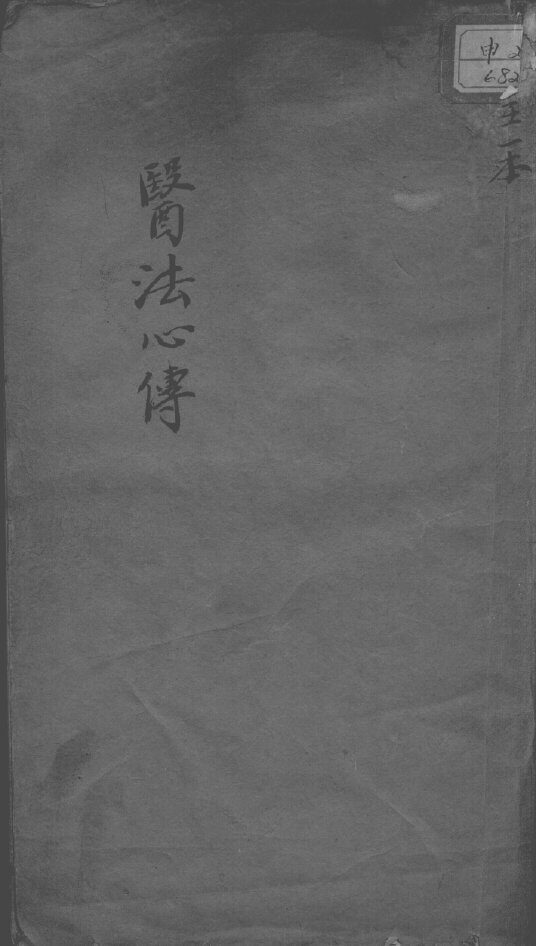 醫法心傳
申2
682
全一本